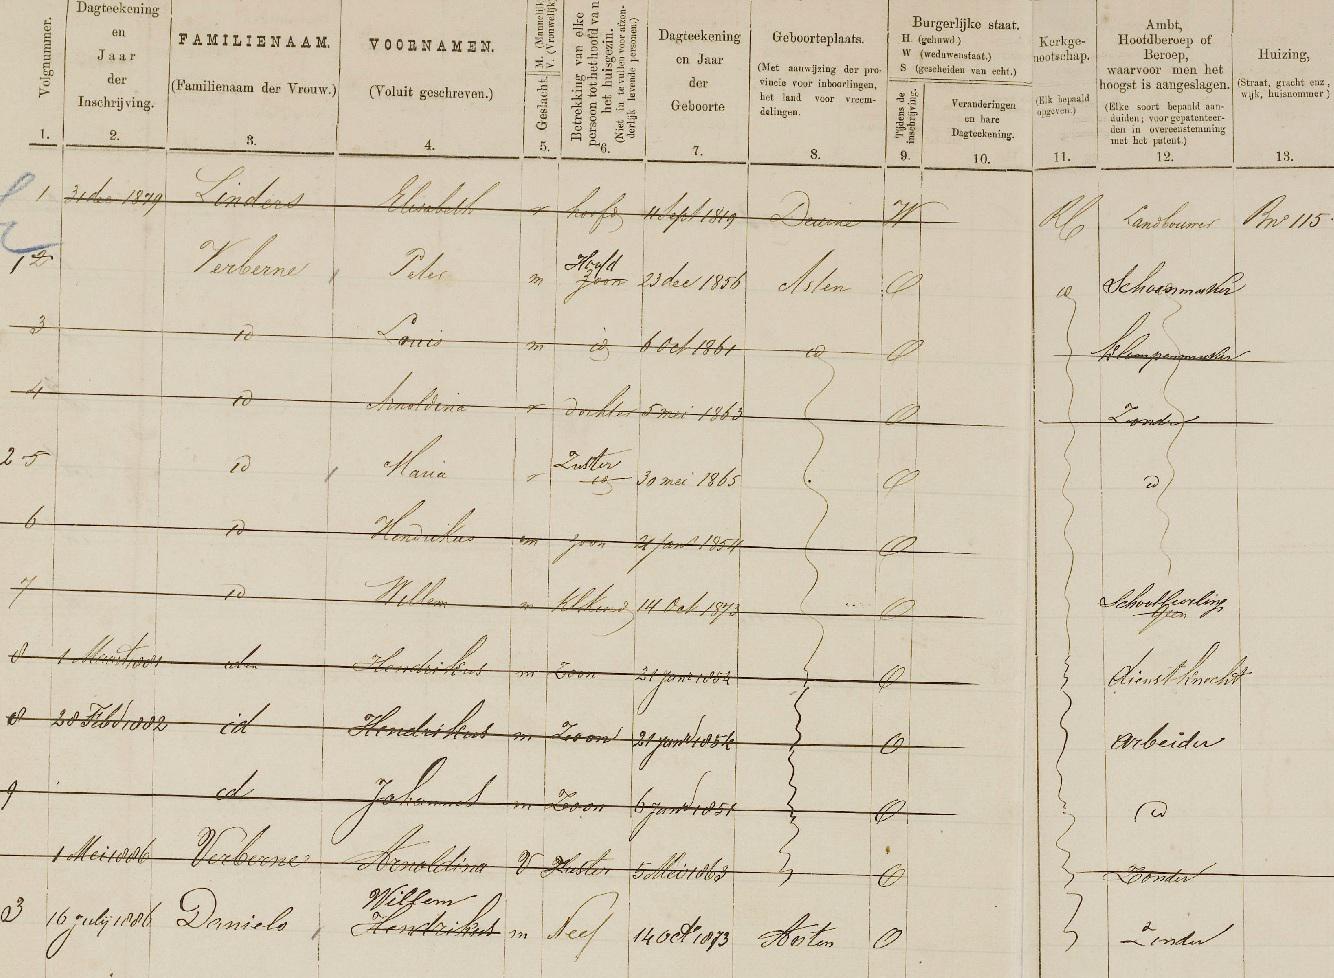 Volgnummer. 1.
Dagteekening en Jaar der Inschrijving. 2.
FAMILIENAAM. (Familienaam der Vrouw.) 3.
VOORNAMEN. (Voluit geschreven.) 4.
Geslacht. M. (Mannelijk) V. (Vrouwelijk) 5.
Betrekking van elke persoon tot het hoofd van het huisgezin. (Niet in te vullen voor afzonderlijk levende personen.) 6.
Dagteekening en Jaar der Geboorte 7.
Geboorteplaats. (Met aanwijzing der provincie voor inboorlingen, het land voor vreemdelingen. 8.
Burgerlijke staat. H. (gehuwd.) W (weduwenstaat.) S (gescheiden van echt.)
Tijdens de inschrijving. 9.
Veranderingen en hare Dagteekening. 10.
Kerkgenootschap. (Elk bepaald opgeven.) 11.
Ambt, Hoofdberoep of Beroep, waarvoor men het hoogst is aangeslagen. (Elke soort bepaald aanduiden; voor gepatenteerden in overeenstemming met het patent.) 12.
Huizing, (Straat, gracht enz., wijk, huisnommer) 13.
1 31 dec 1879 Linders Elisabeth v hoofd 11 Sept 1819 Deurne W RC Landbouwer Bn° 115
1 2 Verberne Peter m Hoofd zoon 23 dec 1856 Asten O id Schoenmaker
3 id Louis m id 6 Oct 1861 id O Klompenmaker
4 id Arnoldina v dochter 5 mei 1863 O Zonder
2 5 id Maria v Zuster id 30 mei 1865 O id
6 id Hendrikus m zoon 21 jan 1854 O
7 id Willem m Klkind 14 Oct 1873 O Schoolleerling
8 1 Maart 1881 idem Hendrikus m Zoon 21 jan 1854 O dienstknecht
8 28 Feb 1882 id Hendrikus m Zoon 21 jan 1854 O arbeider
9 id Johannes m Zoon 6 jan 1851 O id
1 Mei 1886 Verberne Arnoldina V Zuster 5 Mei 1863 O Zonder
3 16 july 1886 Daniels Willem Hendrikus m Neef 14 Oct 1873 Asten O Zonder